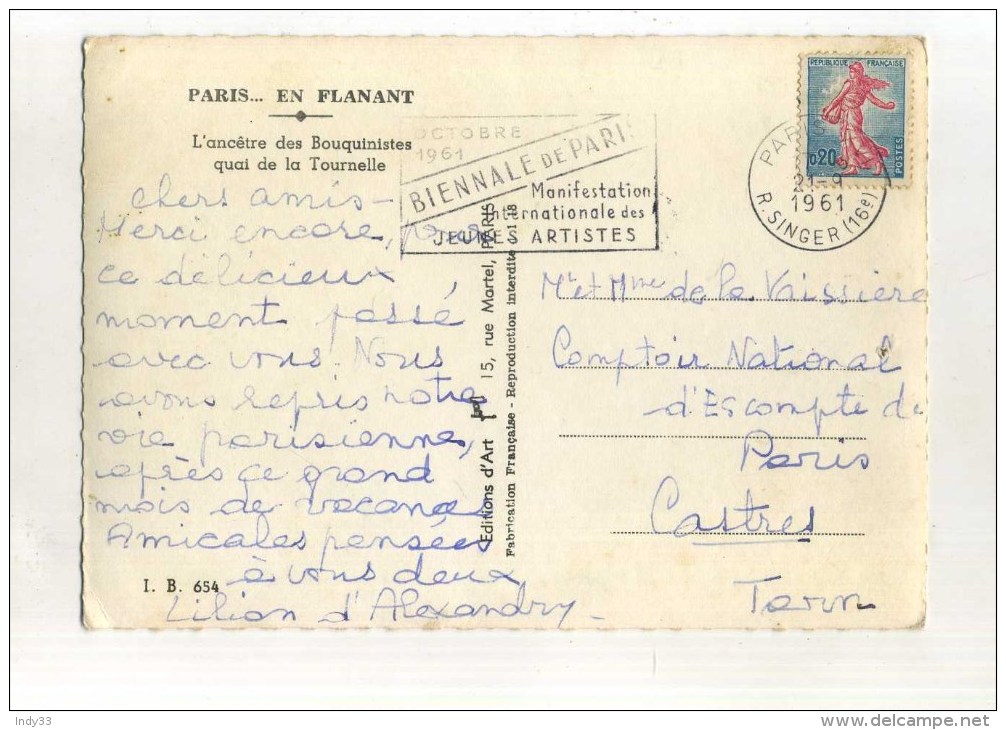 PARIS... EN FLANANT
L'ancêtre des Bouquinistes
quai de la Tournelle
OCTOBRE
1961
BIENNALE DE PARIS
Manifestation
internationale des
JEUNES ARTISTES
REPUBLIQUE FRANÇAISE
0,20
POSTES
PARIS
21-9
1961
R. SINGER (16e)
Chers amis-
Merci encore, pour
ce délicieux
moment passé
avec vous. Nous
avons repris notre
vie parisienne,
après ce grand
mois de vacances
Amicales pensées
à vous deux
Lilian d'Alexandry-
I. B. 654
Editions d'Art 15, rue Martel, PARIS
Fabrication Française - Reproduction interdite 18
Mr et Mme de la Vaissière
Comptoir National
d'Escompte de
Paris
Castres
Tarn
Indy33
www.delcampe.net